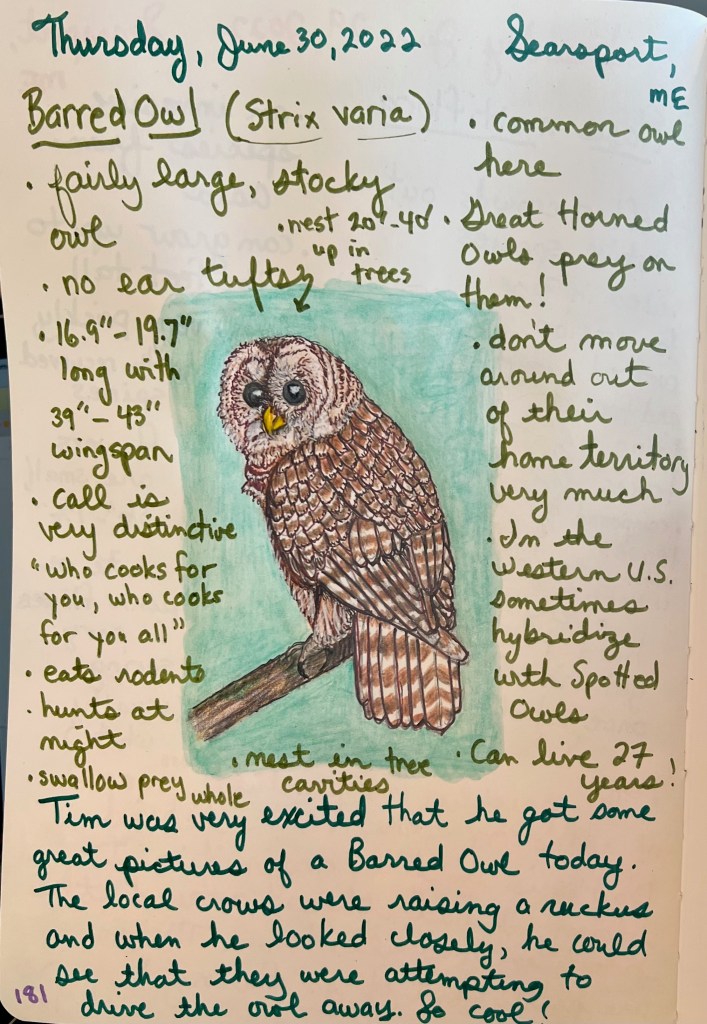 Thursday, June 30, 2022 Searsport,
ME
Barred Owl (Strix varia)
• fairly large, stocky
owl
• nest 20'-40'
up in
trees
• no ear tufts
• 16.9"-19.7"
long with
39"-43"
wingspan
• call is
very distinctive
"who cooks for
you, who cooks
for you all"
• eats rodents
• hunts at
night
• swallow prey whole
• nest in tree
cavities
• common owl
here
• Great Horned
Owls prey on
them!
• don't move
around out
of their
home territory
very much
• In the
western U.S.
sometimes
hybridize
with Spotted
Owls
• Can live 27
years!
Tim was very excited that he got some
great pictures of a Barred Owl today.
The local crows were raising a ruckus
and when he looked closely, he could
see that they were attempting to
drive the owl away. So cool!
181